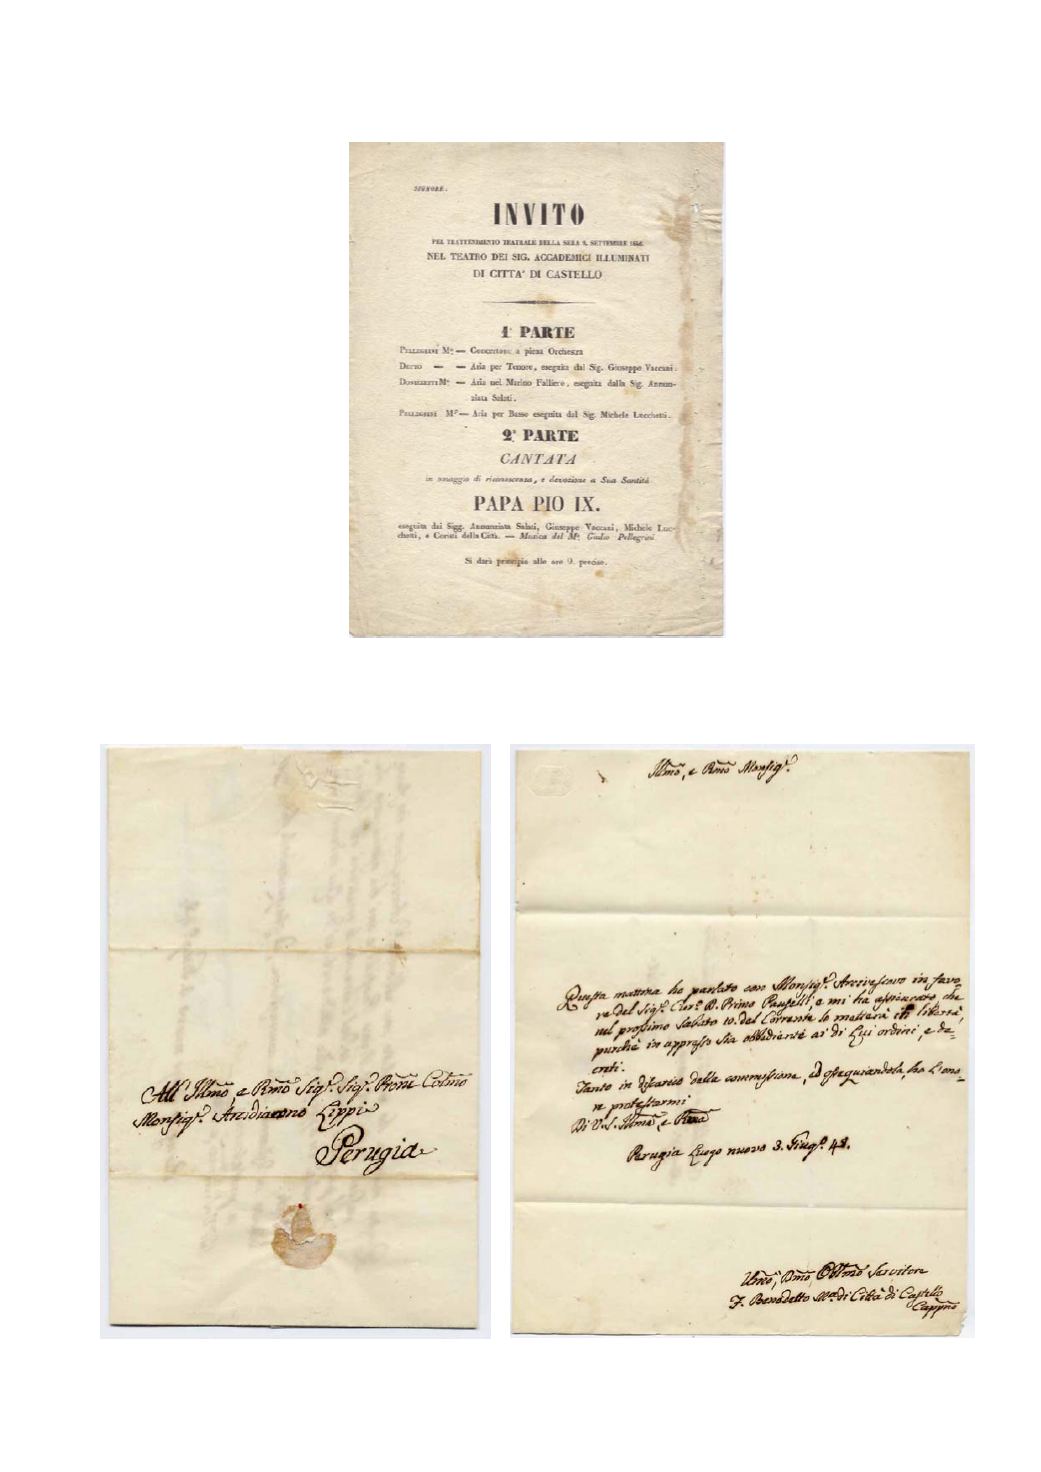 SIGNORE.
INVITO
PEL TRATTENIMENTO TEATRALE DELLA SERA 9. SETTEMBRE 1846.
NEL TEATRO DEI SIG. ACCADEMICI ILLUMINATI
DI CITTA' DI CASTELLO
1ª PARTE
PELLEGRINI Mº. — Concertone a piena Orchestra
DETTO — — Aria per Tenore, eseguita dal Sig. Giuseppe Vaccari.
DONIZZETTI Mº. — Aria nel Marino Falliero, eseguita dalla Sig. Annun-
ziata Salati.
PELLEGRINI Mº. — Aria per Basso eseguita dal Sig. Michele Lucchetti.
2ª PARTE
CANTATA
in omaggio di riconoscenza, e devozione a Sua Santità
PAPA PIO IX.
eseguita dai Sigg. Annunziata Salati, Giuseppe Vaccari, Michele Luc-
chetti, e Coristi della Città. — Musica del Mº. Giulio Pellegrini
Si darà principio alle ore 9. precise.
All' Illmõ, e Rmõ Sigr. Sigr. Prone Colmo
Monsigr. Arcidiacono Lippi
Perugia
Illmõ, e Rmõ Monsigr.
Questa mattina ho parlato con Monsigr. Arcivescovo in favo-
re del Sigr. Curº. D. Primo e mi ha assicurato che
nel prossimo Sabato 10. del Corrente lo metterà in libertà,
purchè in appresso sia obbediente ai di Lui ordini, e de-
creti.
Tanto in discarico della commissione, ed ossequiandola, ho l'ono-
re protestarmi
Di V. S. Illma, e Rma
Perugia Luogo nuovo 3. Giugº. 48.
Umõ, Dmõ, Obblmõ Servitore
F. Benedetto Mª. di Città di Castello
Cappnõ